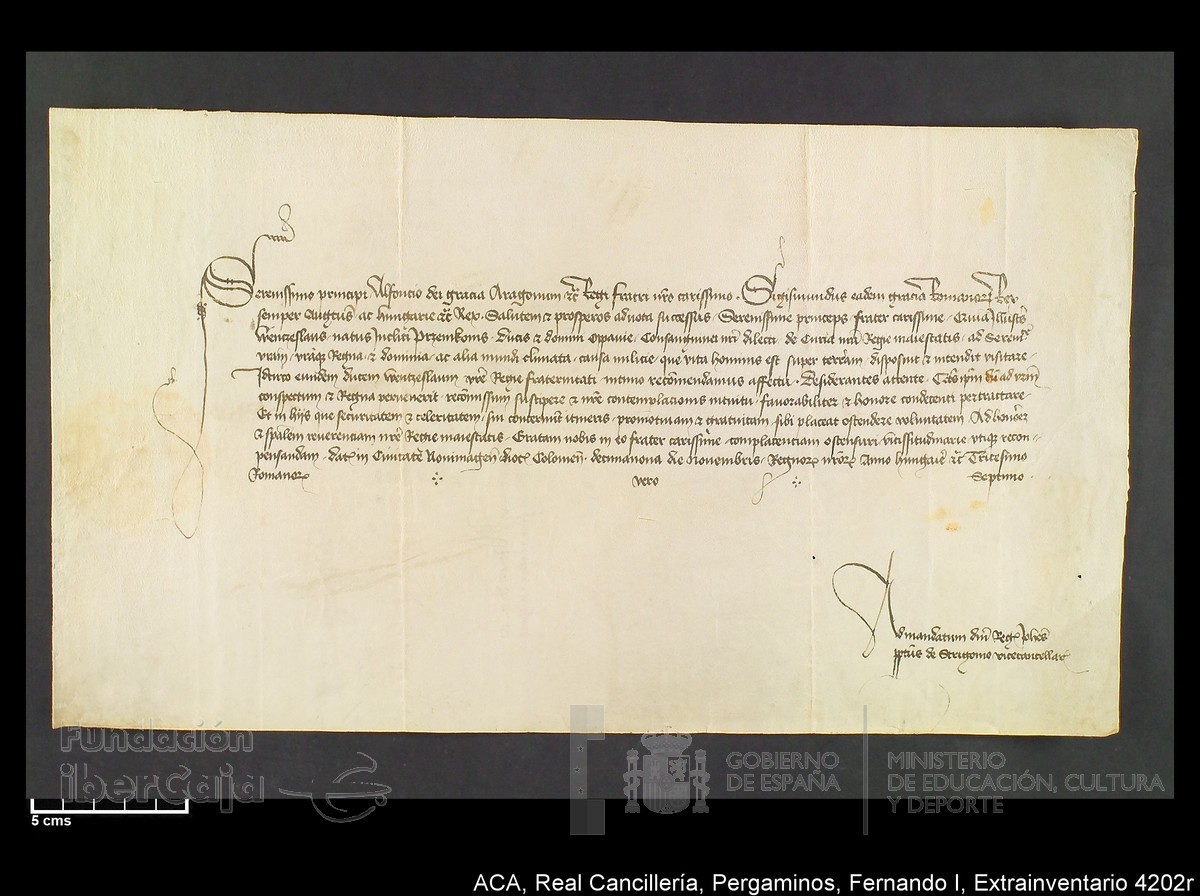 Serenissimo principi Alfoncio dei gracia Aragonum etc Regi fratri nro carissimo. Sigismundus eadem gracia Romanorum Rex
semper Augustus ac hungarie etc Rex. Salutem et prosperos ad vota successus. Serenissime princeps frater carissime. Illustris
Wenczeslaus natus Incliti Przemkonis. Ducis et domini Opavie. Consanguinei nri dilecti de Curia nra Regie maiestatis ad Serend
vram, Regna et dominia ac alia mundi climata, causa milicie, que vita hominis est super terram, disposuit et intendit visitare.
Idcirco eundem ducem Wenczeslaum vre Regie fraternitati intimo recomendamus affectu. Desiderantes attente. ipm ad vrm
conspectum et Regna pervenerit. recomissum suscipere et nre contemplacionis intuitu. favorabiliter et honore condecenti pertractare.
Et in hijs que securitatem et celeritatem sui concernunt itineris. promotivam et gratuitam sibi placeat ostendere voluntatem. Ad honorem
et spalem reverenciam nre Regie maiestatis. Gratam nobis in eo frater carissime complacenciam ostensuri vicissitudinarie utique recon
pensandam. dat in Civitate Novimagen dioc Colonien. decimanona die Novembris. Regnorum nrorum Anno hungarie etc Tricesimo
Romanorum vero Septimo
Admandatum dni Regis Johes
ppitus de Strigonio vicecancellar
5 cms
Fundación
iberCaja
GOBIERNO
DE ESPAÑA
MINISTERIO
DE EDUCACIÓN, CULTURA
Y DEPORTE
ACA, Real Cancillería, Pergaminos, Fernando I, Extrainventario 4202r